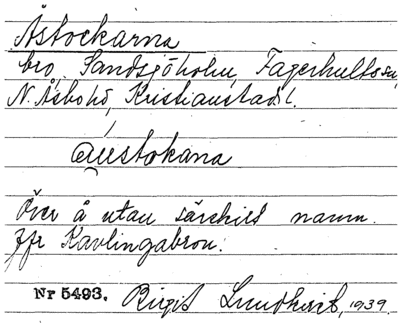 Åstockarna
bro, Sandsjöholm, Fagerhults sn,
N. Åsbo hd, Kristianstads l.
åustokana
Över å utan särskilt namn.
Jfr Kavlingabron.
Nr 5493. Birgit Lundkvist, 1939.